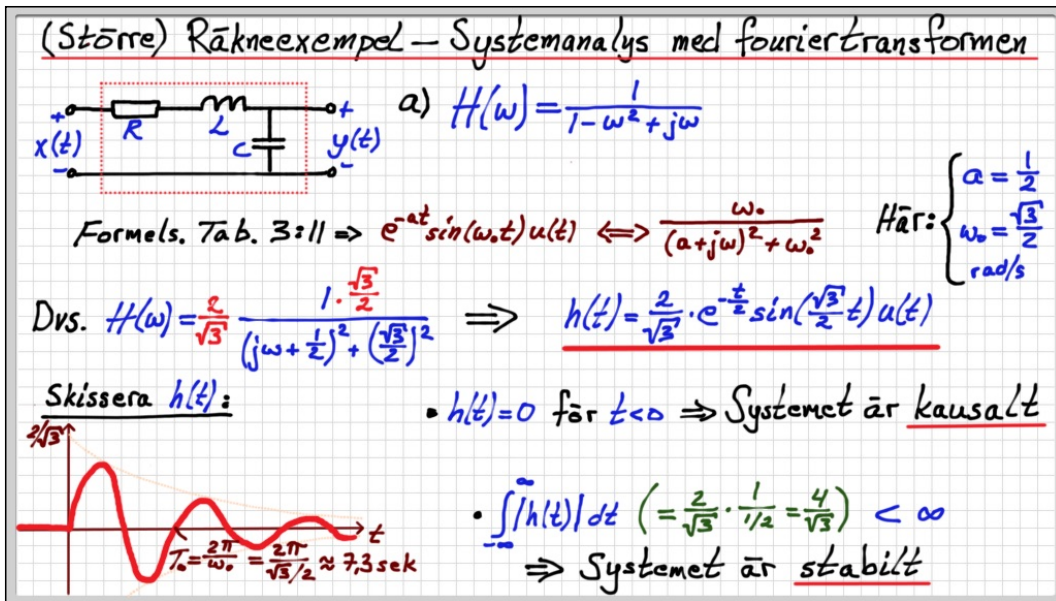 (Större) Räkneexempel – Systemanalys med fouriertransformen
+ R L C + x(t) y(t) - -
a) H(ω) = 1/(1-ω²+jω)
Formels. Tab. 3:11 ⇒ e^{-at} sin(ω₀t) u(t) ⟺ ω₀/((a+jω)²+ω₀²)
Här: { a = 1/2
ω₀ = √3/2
rad/s
Dvs. H(ω) = 2/√3 · (1·√3/2)/((jω+1/2)²+(√3/2)²) ⇒ h(t) = 2/√3 · e^{-t/2} sin(√3/2 t) u(t)
Skissera h(t):
2/√3
t
T₀ = 2π/ω₀ = 2π/(√3/2) ≈ 7,3 sek
• h(t) = 0 för t<0 ⇒ Systemet är kausalt
• ∫_{-∞}^{∞} |h(t)| dt (= 2/√3 · 1/(1/2) = 4/√3) < ∞
⇒ Systemet är stabilt